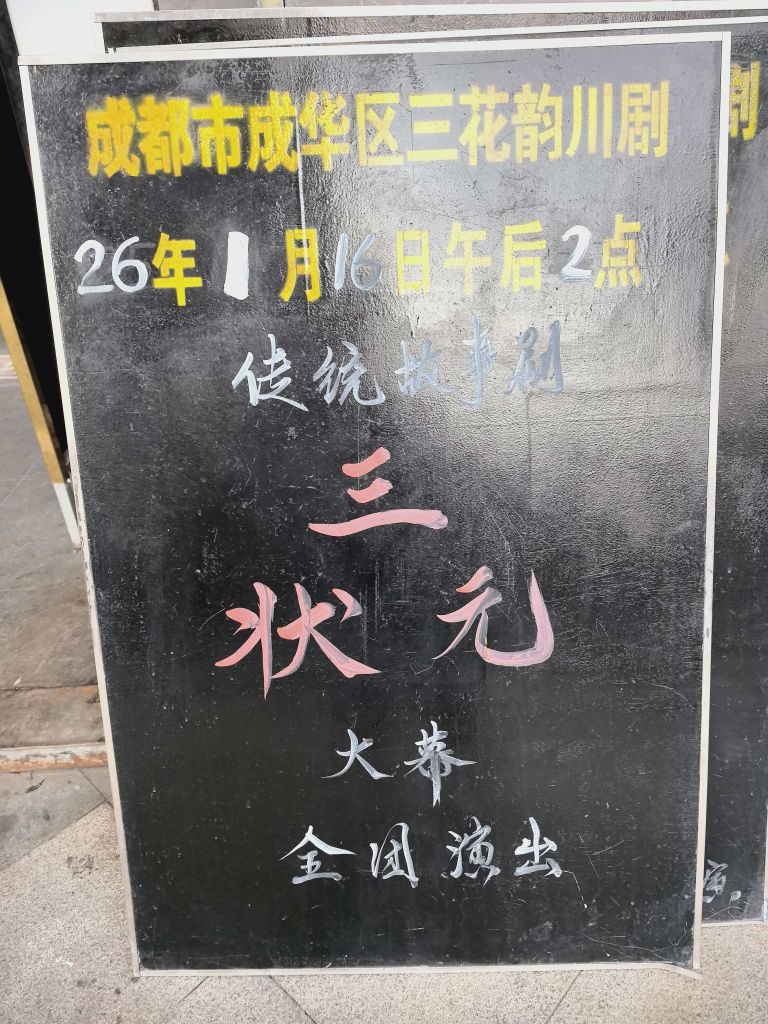 成都市成华区三花韵川剧
26年1月16日午后2点
传统故事剧
三
状元
大幕
全团演出
剧
演